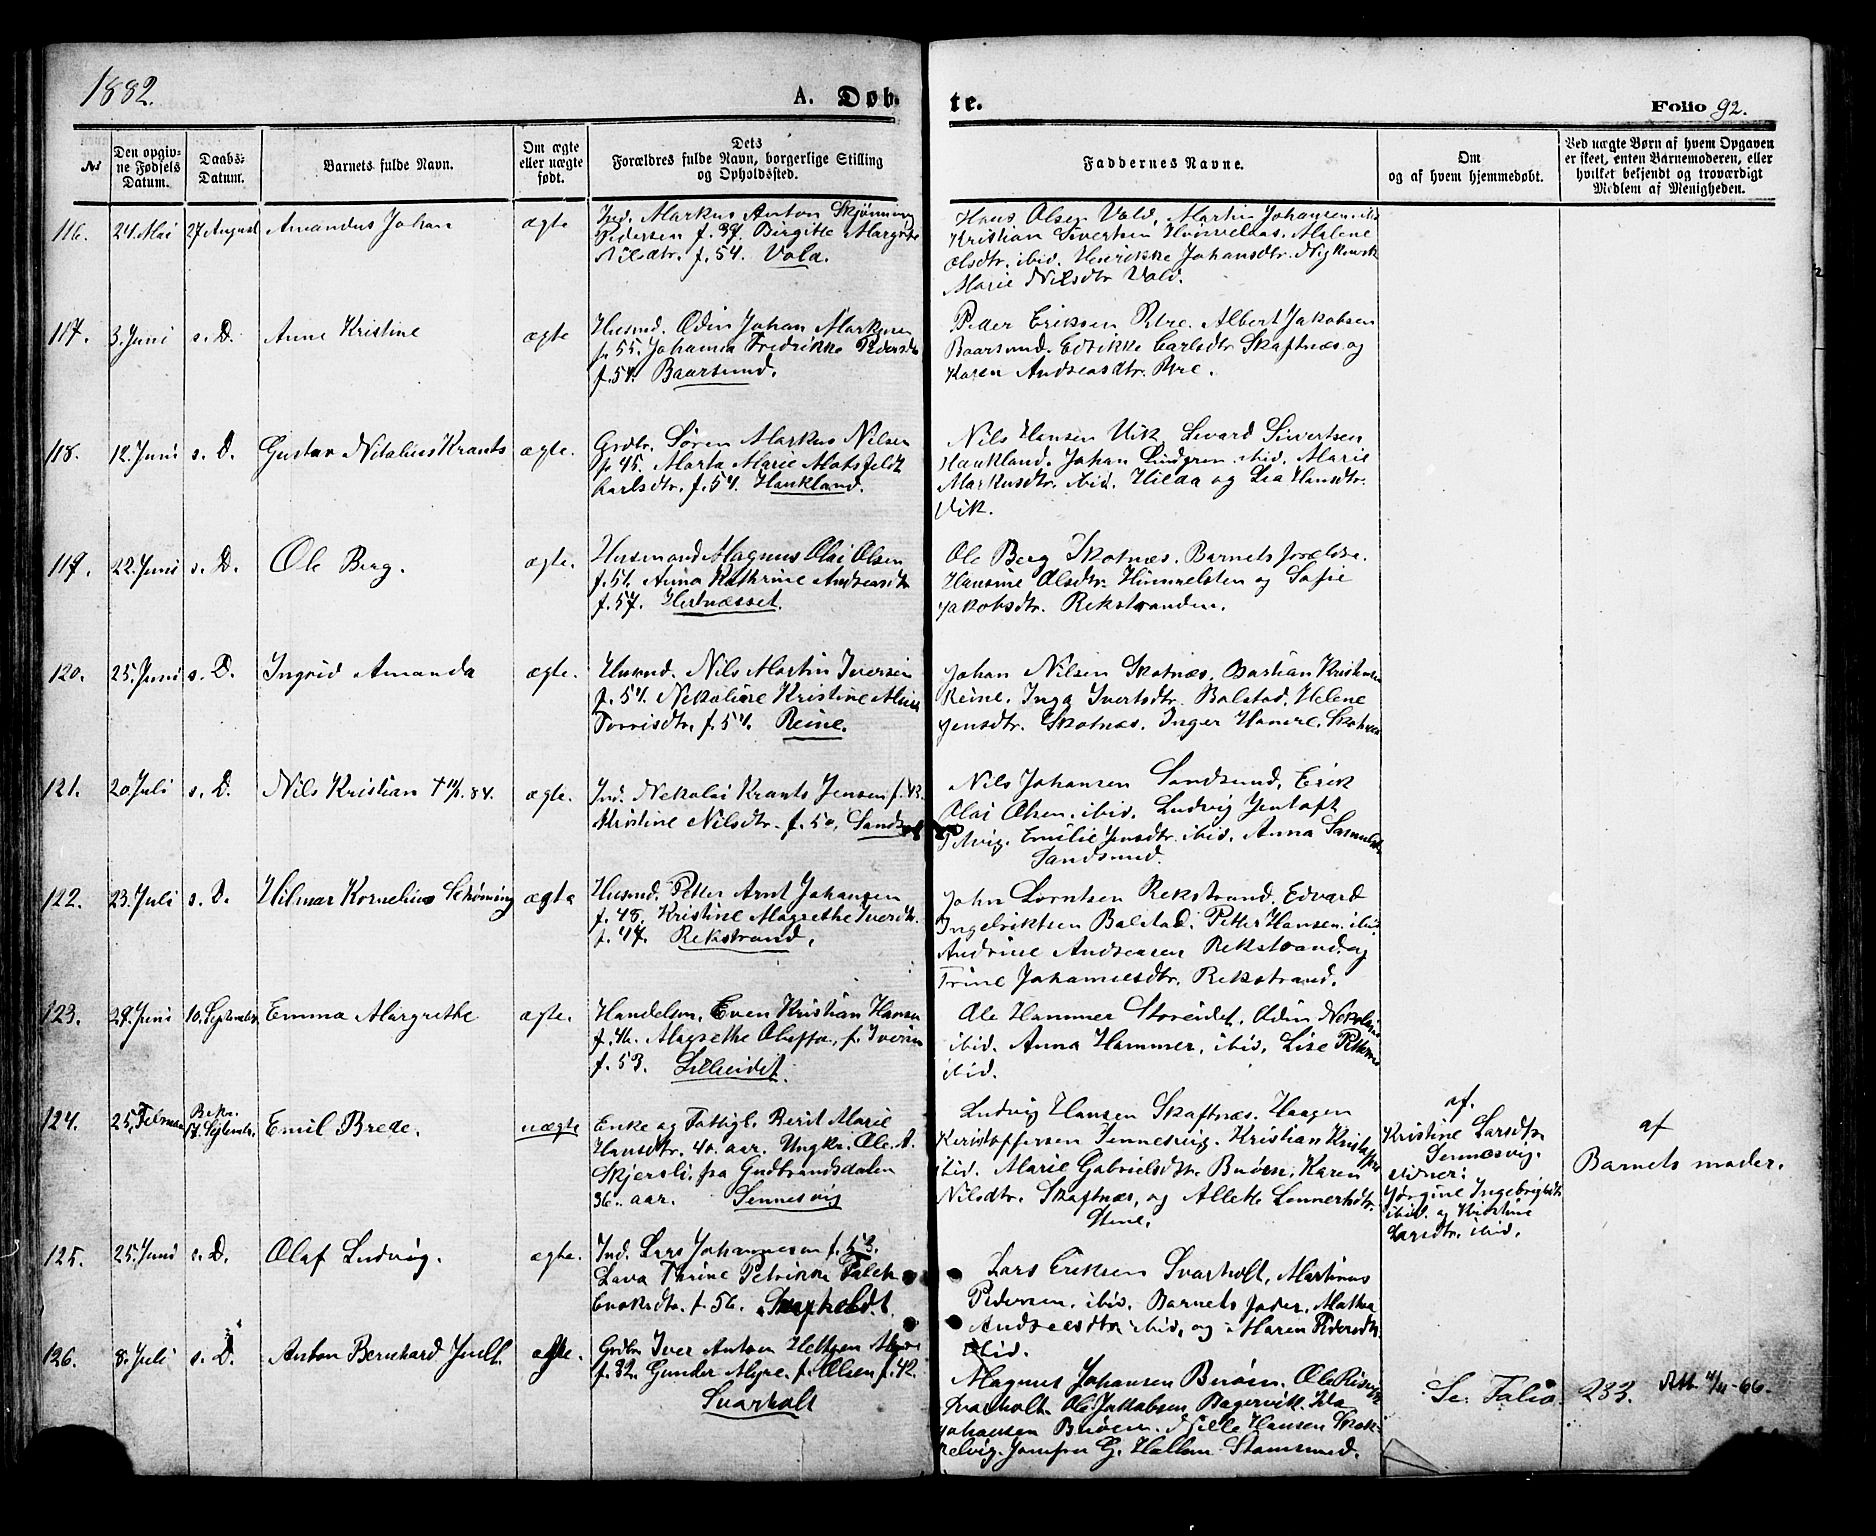 1882.
A. Døb-
te.
Folio 92.
No
Den opgiv-
ne Fødsels
Datum.
Daabs-
Datum.
Barnets fulde Navn.
Om ægte
eller uægte
født.
Dets
Forældres fulde Navn, borgerlige Stilling
og Opholdssted.
Faddernes Navne.
Om
og af hvem hjemmedøbt.
Ved uægte Børn af hvem Opgaven
er skeet, enten Barnemoderen, eller
hvilket bekjendt og troværdigt
Medlem af Menigheden.
116. 24 Mai 27 August Amandus Johan ægte
Ind. Markus Anton Skjønning
Pedersen f. 37. Birgitte Margrete
Nilsdtr. f. 54. Vold.
Hans Olsen Vold, Martin Johansen ibd
Kristian Sivertsen Malene
Olsdtr. ibid. Henrikke Johansdtr.
Marie Nilsdtr Vold.
117. 3. Juni s. D. Anne Kristine ægte
Husmd. Odin Johan Markusen
f. 55. Johanna Fredrikke Pedersdtr
f. 54. Baarsund.
Peder Eriksen Bøe. Albert Jakobsen
Baarsund. Edikke Carlsdtr Skaftnæs og
Karen Andreasdtr. Bøe.
118. 12. Juni s. D. Gustav Nitalius Krants ægte.
Grdbr. Søren Markus Nilsen
f. 45. Marta Marie Motzfeldt
Carlsdtr. f. 54. Haukland.
Nils Hansen Vik, Sivertsen
Haukland. Johan Lindgren ibid. Marie
Markusdtr. ibid. Hilda og Lea Hansdtr.
Vik.
119. 22. Juni s. D. Ole Berg. ægte.
Husmand Magnus Olai Olsen
f. 51. Anna Kathrine Andreasdtr
f. 57. Hestnæsset.
Ole Berg Skotnæs. Barnets forældre.
Hansine Olsdtr. Himmelsten og Sofie
Jakobsdtr. Rekstranden.
120. 25. Juni s. D. Ingrid Amanda ægte.
Husmd. Nils Martin Iversen
f. 54. Nekoline Kristine
f. 54. Reine.
Johan Nilsen Skotnæs, Bastian Kristensen
Reine. Inga Ivertsdtr. Balstad. Helene
Jensdtr. Skotnæs. Inger Hamre. Skotnæs
121. 20. Juli s. D. Nils Kristian ægte.
Ind. Nekolai Krants Jensen f. 43.
Kristine Nilsdtr. f. 50.
Nils Johansen Sandsund, Erik
Olai Olsen. ibid. Ludvig Jentoft
Emilie Jensdtr. ibid. Anna
Sandsund.
122. 23. Juli s. D. Hilmar Kornelius Schrøning ægte
Husmd. Petter Arnt Johansen
f. 48. Kristine Magrethe Iversdtr.
f. 47. Rekstrand.
John Lorntsen Rekstrand. Edvard
Ingebriktsen Balstad. Petter Hansen. ibid
Andrine Andreasen Rekstrand og
Trine Johannesdtr. Rekstrand.
123. 29. Juni 10. September Emma Margrethe ægte.
Handelsm. Even Kristian Hansen
f. 46. Magrethe Oluffa, f. Iversen
f. 53. Lilleeidet.
Ole Hammer Storeidet. Odin Nekolaisen
ibid. Anna Hammer, ibid, Lise
ibid.
124. 25. Februar Bekr. 17. September. Emil Brede. uægte
Enke og Fattigl. Berit Marie
Hansdtr. 40. aar. Ungkr. Ole. A.
Skjersli. fra Gudbrandsdalen
36. aar. Sennesvig
Ludvig Hansen Skaftnæs. Haagen
Kristoffersen Sennesvig. Kristian Kristoffer
ibid. Marie Gabrielsdtr. Buøen. Karen
Nilsdtr. Skaftnæs, og Allette Lennertsdtr.
Stene.
af.
Kristine Larsdtr
Sennesvig.
vidner:
Jørgine Ingebrigtsdtr
ibid. og Kristine
Larsdtr. ibid.
af
Barnets moder.
125. 25. Juni s. D. Olaf Ludvig. ægte.
Ind. Lars Johannesen f. 53.
Petrikke
Enoksdtr. f. 56. Svarholdt.
Lars Eriksen Svarholt, Martinus
Pedersen. ibid. Barnets fader. Mathea
Andreasdtr ibid, og Maren Pedersdtr
ibid.
126. 8. Juli s. D. Anton Bernhard Juell. ægte.
Grdbr Iver Anton
f. 32. Gunder Myre. f. Olsen f. 42.
Svarholt
Magnus Johansen Buøen. Ole
Svarholt. Ole Jakobsen Ida
Johansen Buøen. Hansen
Jomfru G. Hallum Stamsund.
Se. Folio. 283. 4/11-66.